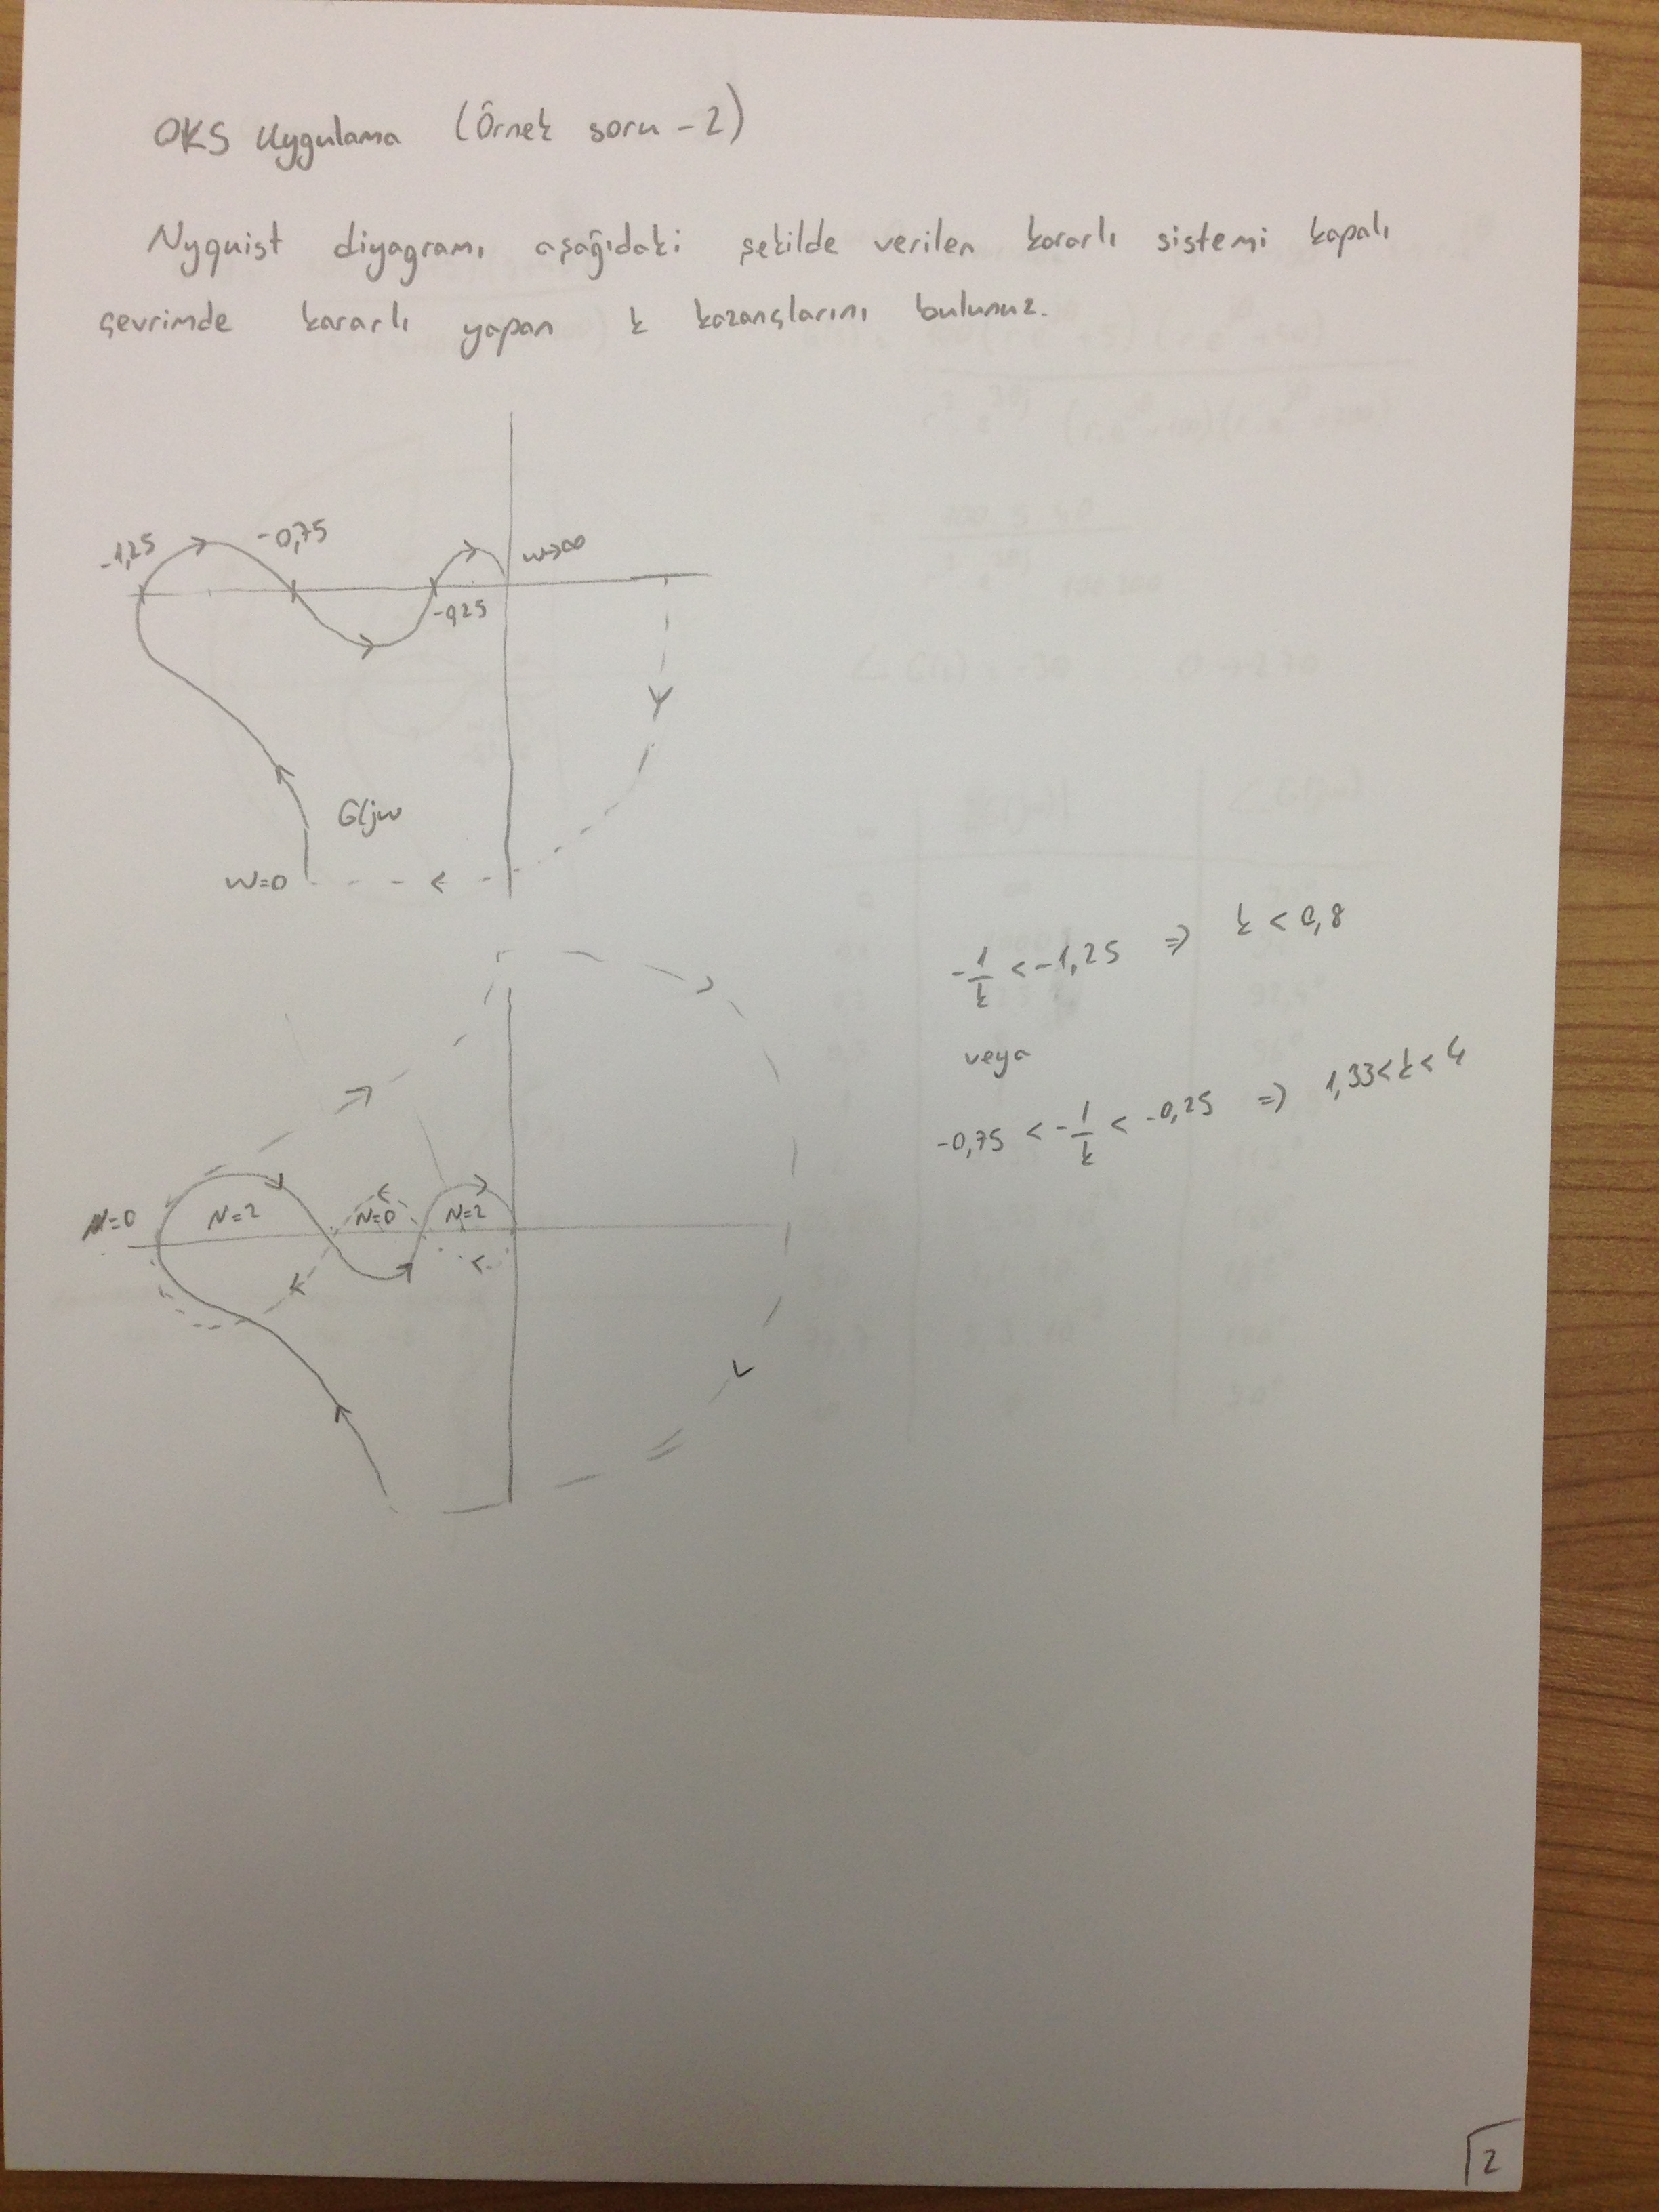 OKS Uygulama (Örnek soru - 2)
Nyquist diyagramı aşağıdaki şekilde verilen kararlı sistemi kapalı
çevrimde kararlı yapan k kazançlarını bulunuz.
-1,25
-0,75
w→∞
-0,25
G(jw
w=0
-1/k < -1,25 ⇒ k < 0,8
veya
-0,75 < -1/k < -0,25 ⇒ 1,33<k<4
N=0
N=2
N=0
N=2
2